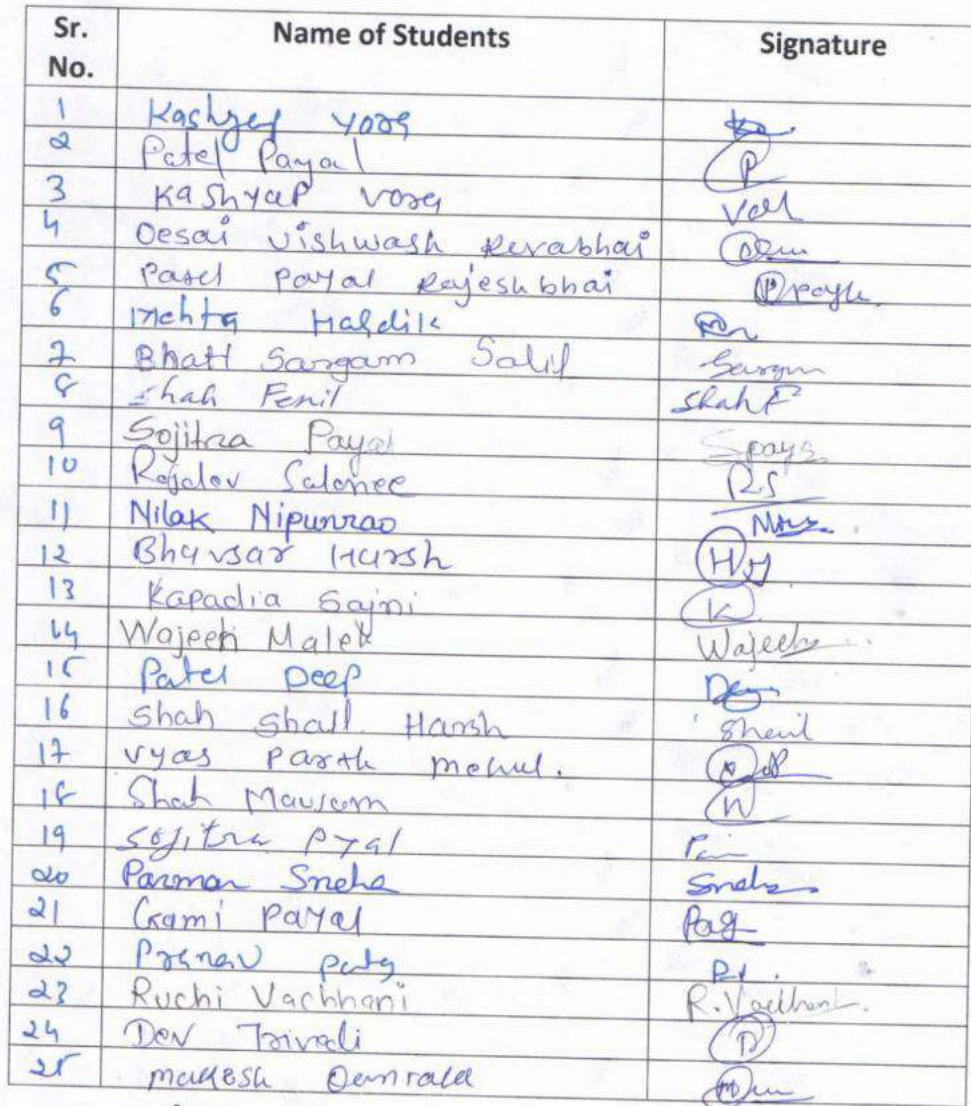 Sr. No. Name of Students Signature
1 Kashyap Vora
2 Patel Payal P
3 Kashyap Vora
4 Desai Vishwash Revabhai
5 Patel Payal Rajeshbhai P Payal
6 Mehta Hardik
7 Bhatt Sargam Salil Sargam
8 Shah Fenil Shah F
9 Sojitra Payal S Paya
10 Salonee RS
11 Nilak Nipunrao
12 Bhavsar Harsh H
13 Kapadia Sajni K
14 Wajeeh Malek Wajeeh
15 Patel Deep
16 Shah Shail Harsh Shail
17 Vyas Parth Mehul.
18 Shah Mausam
19 Sojitra Pyal
20 Parmar Sneha Sneha
21 Gami Payal Pay
22 Pranav
23 Ruchi Vachhani R. Vachhani
24 Dev Trivedi D
25 Mahesh